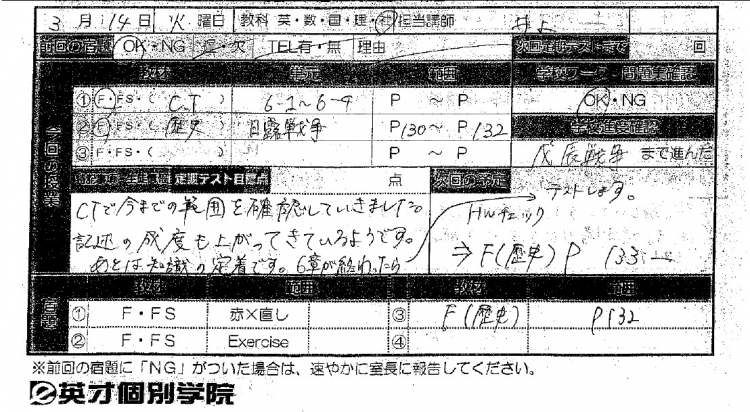 3月14日 火曜日 教科 英・数・国・理・社 担当講師 井上
前回の宿題 OK・NG 遅・欠 TEL有・無 理由 次回定期テストまで 回
教材 単元 範囲 学校ワーク・問題集確認
① F・FS・( CT ) 6-1～6-4 P ～ P OK・NG
② F・FS・( 歴史 ) 日露戦争 P130～P132 学校進度確認
③ F・FS・( ) P ～ P 戊辰戦争 まで進んだ
今回の授業
定期テスト目標点 点 次回の予定
CTで今までの範囲を確認していきました。
記述の成度も上がってきているようです。
あとは知識の定着です。6章が終わったら
テストします。
HWチェック
⇒ F(歴史) P 133～
宿題
教材 範囲 教材 範囲
① F・FS 赤×直し ③ F(歴史) P132
② F・FS Exercise ④
※前回の宿題に「NG」がついた場合は、速やかに室長に報告してください。
英才個別学院